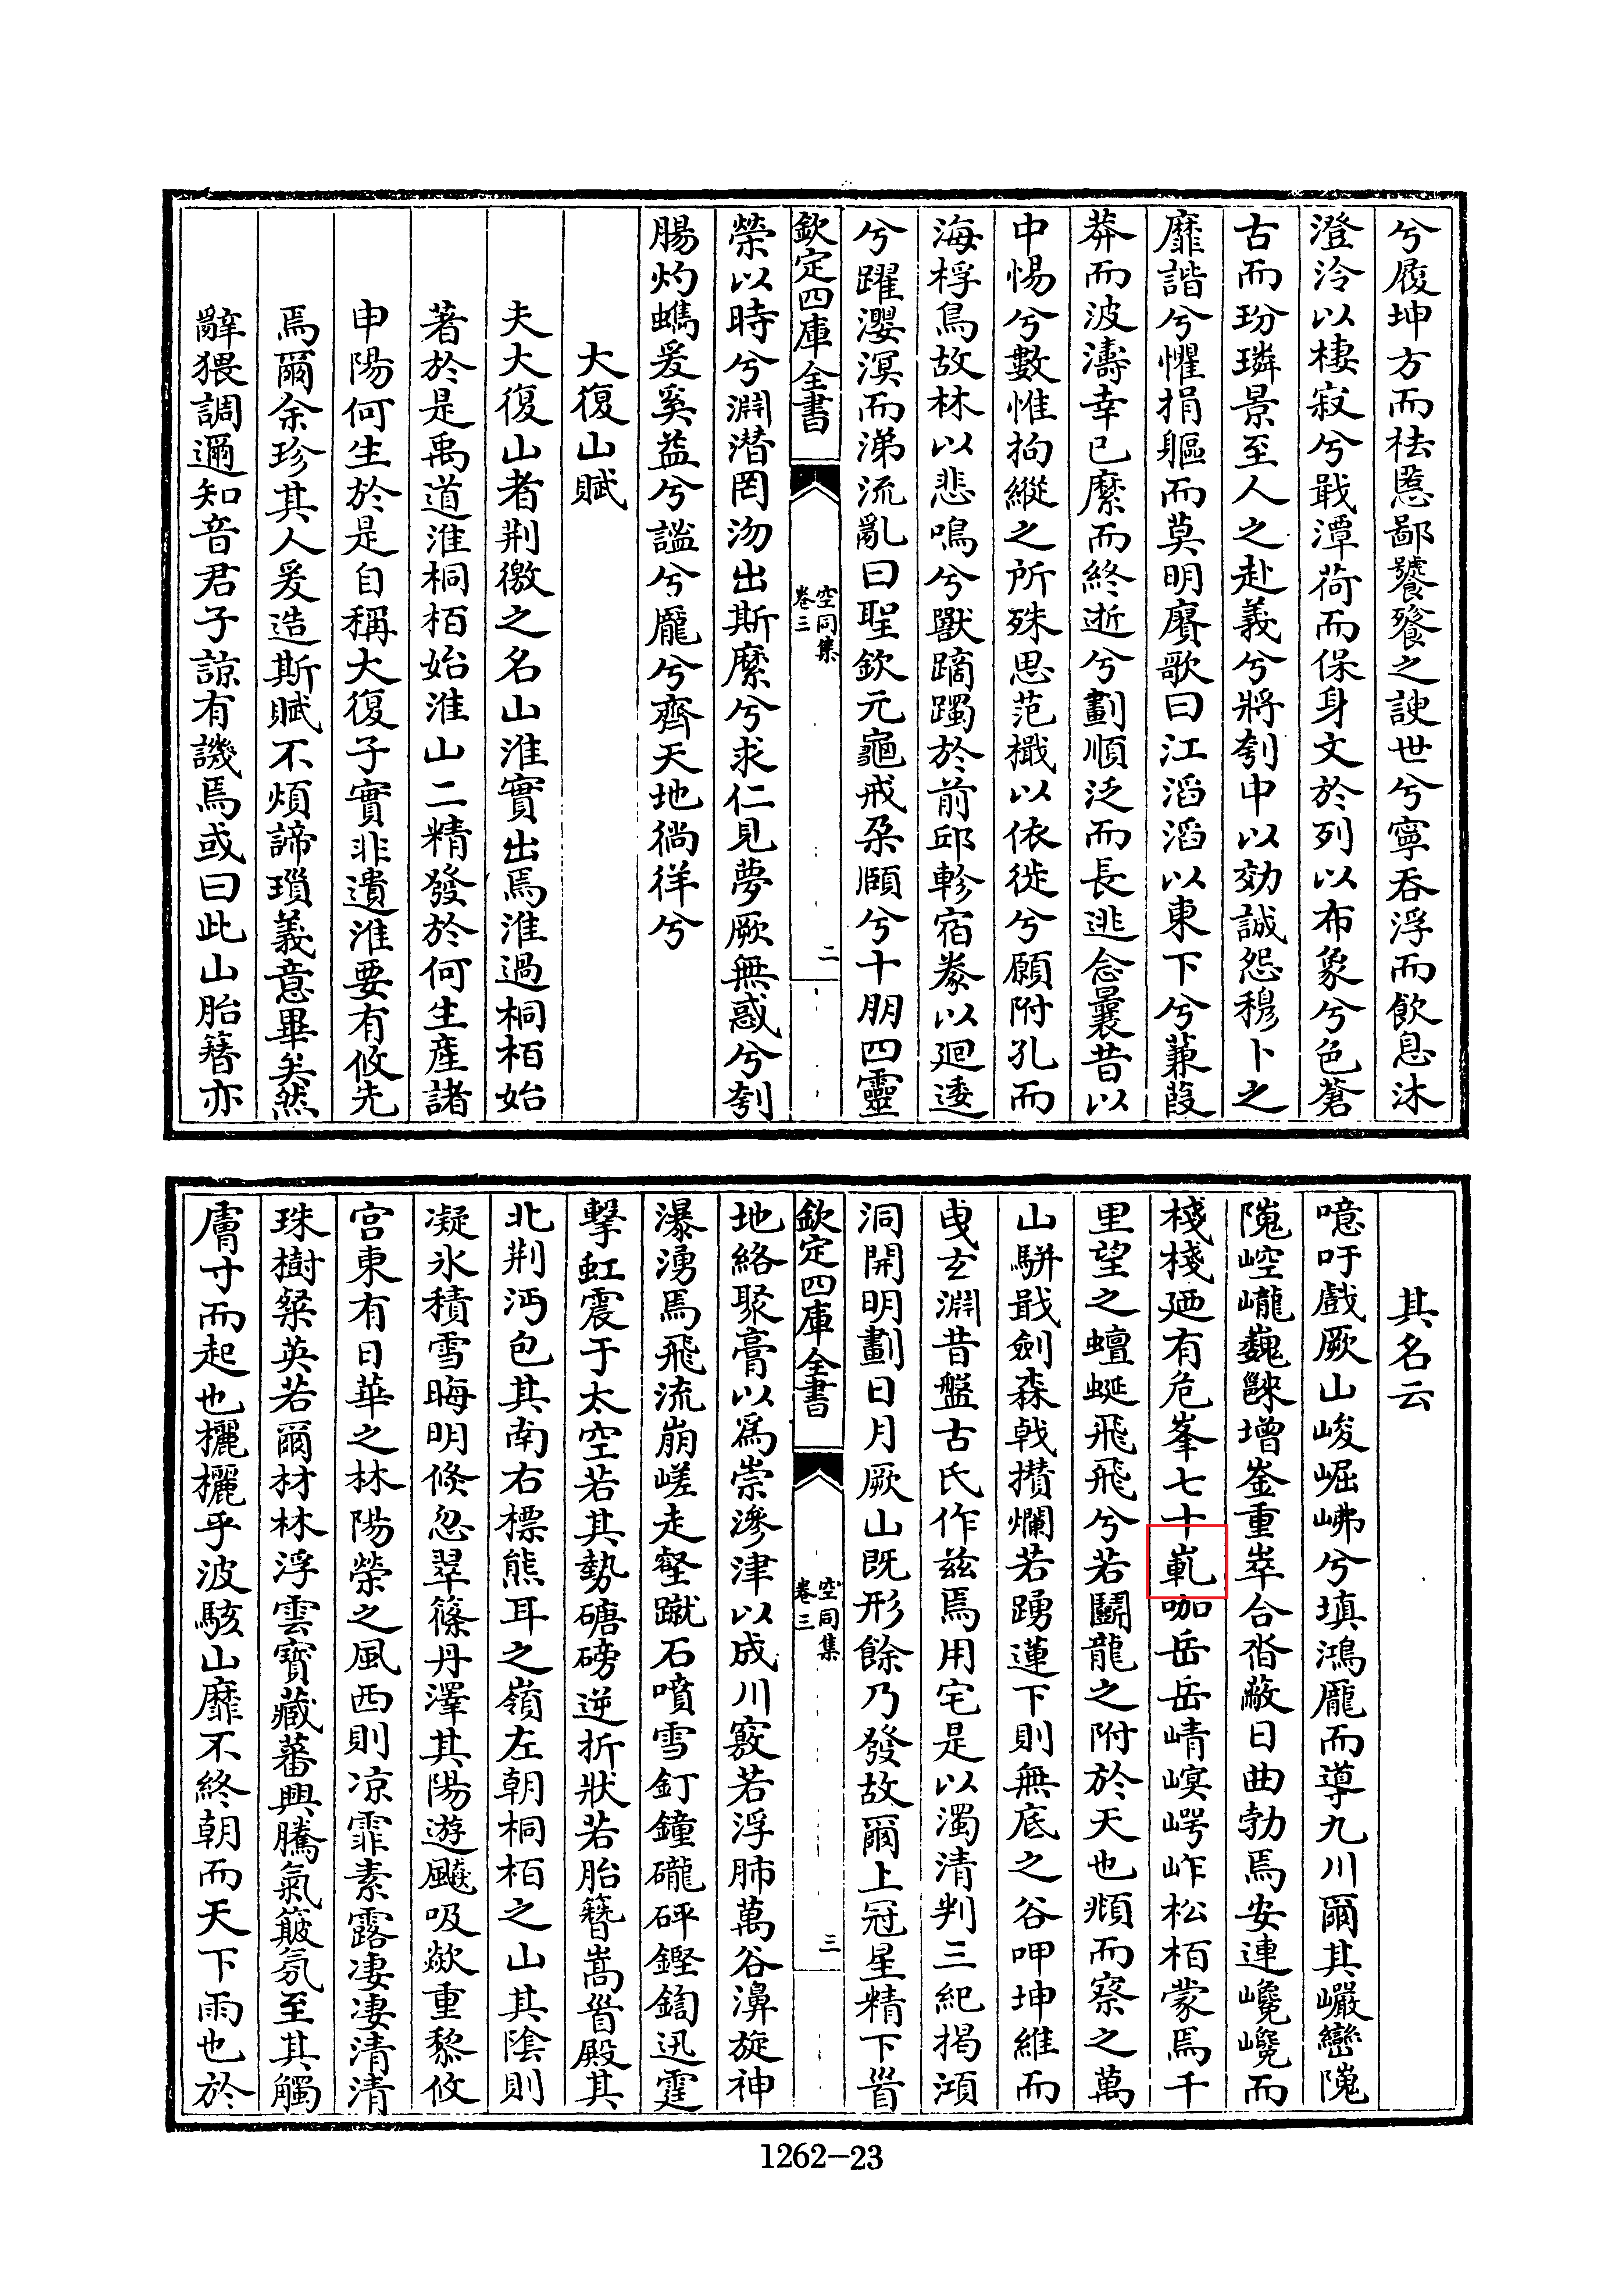 兮履坤方而祛慝鄙饕餮之諛世兮寧吞浮而飲息沐
澄泠以棲寂兮戢潭荷而保身文於列以布象兮色蒼
古而玢璘景至人之赴義兮將刳中以効誠怨穆卜之
靡諧兮懼捐軀而莫明賡歌曰江滔滔以東下兮蒹葭
莽而波濤幸已縻而終逝兮劃順泛而長逃念曩昔以
中惕兮數惟拘縱之所殊思范檝以依徙兮願附孔而
海桴鳥故林以悲鳴兮獸蹢躅於前邱軫宿豢以迴逶
兮躍瀴溟而涕流亂曰聖欽元龜戒朶頤兮十朋四靈
欽定四庫全書
空同集
卷三
二
榮以時兮淵潛罔沕出斯縻兮求仁見夢厥無惑兮刳
腸灼䗣爰奚益兮謐兮龎兮齊天地徜徉兮
大復山賦
夫大復山者荆徼之名山淮實出焉淮過桐栢始
著於是禹道淮桐栢始淮山二精發於何生產諸
申陽何生於是自稱大復子實非遺淮要有攸先
焉爾余珍其人爰造斯賦不煩諦瑣義意畢矣然
辭猥調邇知音君子諒有譏焉或曰此山胎簪亦
其名云
噫吁戲厥山峻崛岪兮填鴻龎而導九川爾其巖巒隗
隗崆巄巍隒增崟重崒合沓蔽日曲勃焉安連巉巉而
棧棧廼有危峯七十 㕰岳岳崝嵫崿岞松栢蒙焉千
里望之蟺蜒飛飛兮若鬭龍之附於天也頫而察之萬
山駢戢劍森戟攢爛若踴蓮下則無底之谷呷坤維而
曳玄淵昔盤古氏作兹焉用宅是以濁清判三紀揭澒
洞開明劃日月厥山既形餘乃發故爾上冠星精下胷
欽定四庫全書
空同集
卷三
三
地絡聚膏以爲崇滲津以成川竅若浮肺萬谷濞旋神
瀑湧焉飛流崩嵯走壑蹴石噴雪釘鐘礲砰鏗鍧迅霆
擊虹震于太空若其勢磄磅逆折狀若胎簪嵩胷殿其
北荆沔包其南右標熊耳之嶺左朝桐栢之山其陰則
凝氷積雪晦明倏忽翠篠丹澤其陽遊飈吸欻重黎攸
宫東有日華之林陽榮之風西則凉霏素露凄凄清清
珠樹粲英若爾材林浮雲寳藏蕃興騰氣簸氛至其觸
膚寸而起也欐欐乎波駭山靡不終朝而天下雨也於